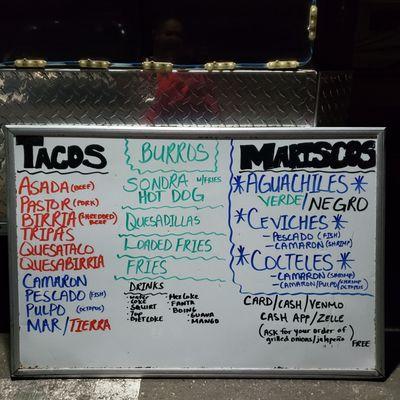 TACOS
ASADA (BEEF)
PASTOR (PORK)
BIRRIA (SHREDDED BEEF)
TRIPAS
QUESATACO
QUESABIRRIA
CAMARON
PESCADO (FISH)
PULPO (OCTOPUS)
MAR/TIERRA
BURROS
SONORA HOT DOG W/FRIES
QUESADILLAS
LOADED FRIES
FRIES
DRINKS
- WATER
- COKE
- SQUIRT
- 7UP
- DIET COKE
- MEX COKE
- FANTA
- BOING
- GUAVA
- MANGO
MARISCOS
*AGUACHILES*
VERDE/NEGRO
*CEVICHES*
- PESCADO (FISH)
- CAMARON (SHRIMP)
*COCTELES*
- CAMARON (SHRIMP)
- CAMARON/PULPO (SHRIMP/OCTOPUS)
CARD/CASH/VENMO
CASH APP/ZELLE
(Ask for your order of grilled onions/jalapeño) FREE